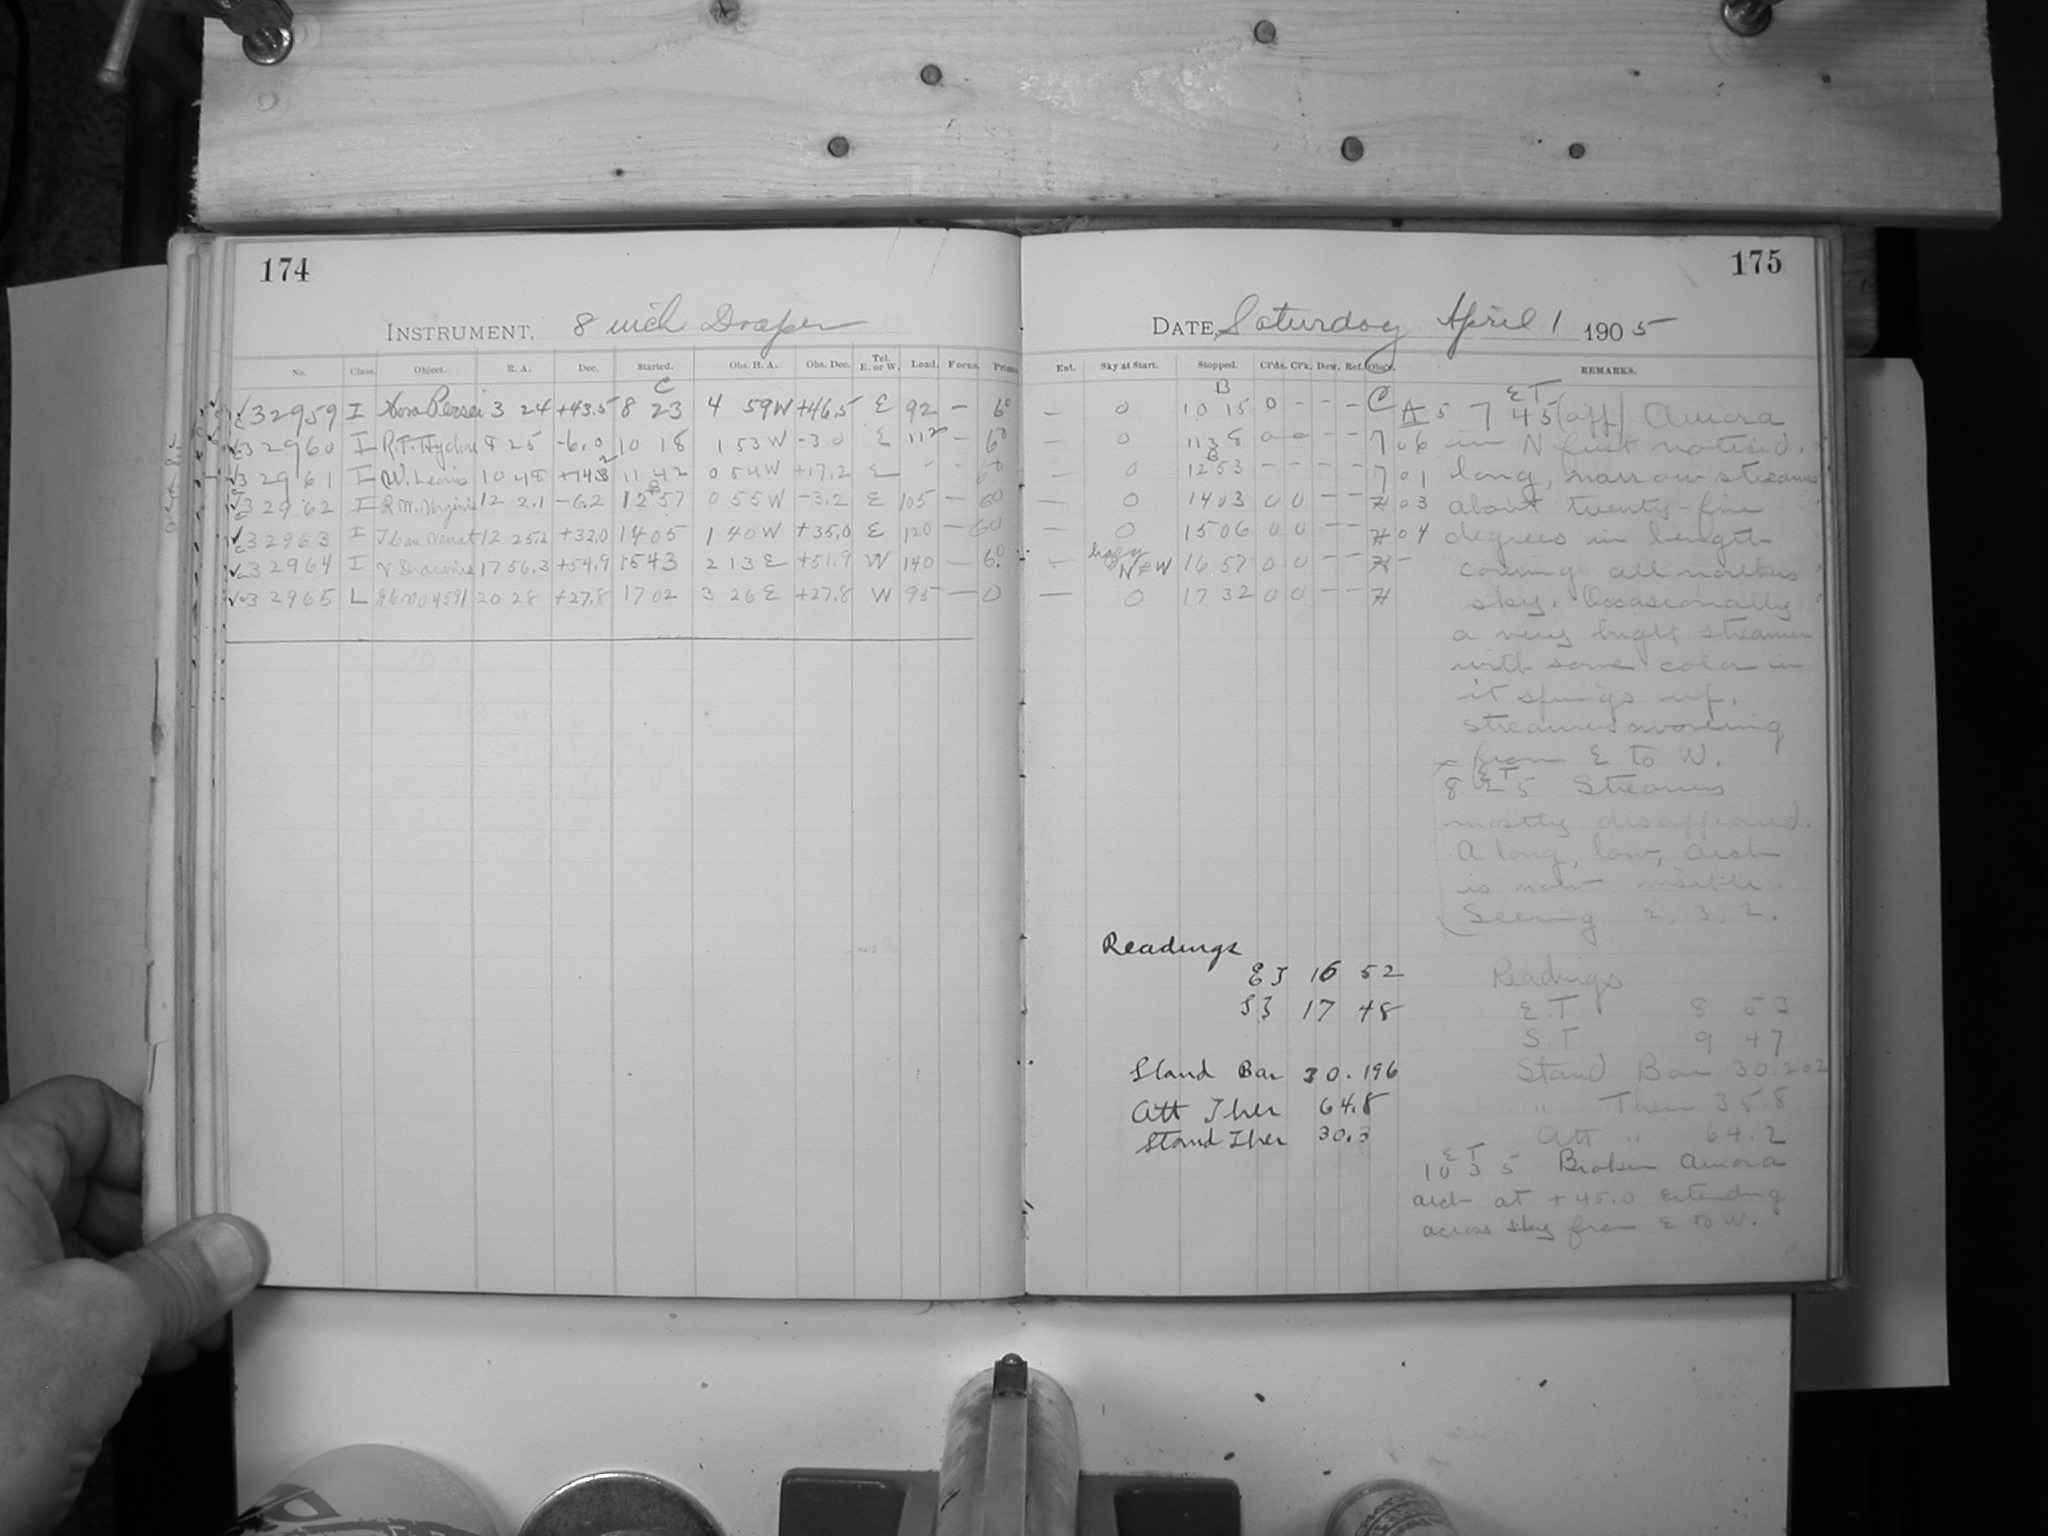 174
INSTRUMENT, 8 inch Draper
No. Class. Object. R. A. Dec. Started. Obs. H. A. Obs. Dec. Tel. E. or W. Load. Focus. Prism.
C
32959 I Nova Persei 3 24 +43.5 8 23 4 59 W +46.5 E 92 – 60
32960 I R.T. Hydrae 8 25 -6.0 10 18 1 53 W -3.0 E 112 – 60
32961 I W. Leonis 10 48 11 42 0 54 W +17.2 E
B
32962 I R.W. Virginis 12 2.1 -6.2 12 57 0 55 W -3.2 E 105 – 60
32963 I 12 25.2 +32.0 1405 1 40 W +35.0 E 120 – 60
32964 I Draconis 17 56.3 +54.9 1543 2 13 E +51.9 W 140 – 60
32965 L 20 28 +27.8 1702 3 26 E +27.8 W 95 – 0
175
DATE, Saturday April 1 1905
Ent. Sky at Start. Stopped. Cl'ds. Cl'k. Dew. Ref. Obs'r. REMARKS.
B
– 0 10 15 0 – – – C
– 0 11 38 0 – – –
B
– 0 12 53 – – – –
– 0 1403 0 0 – – H
– 0 1506 0 0 – – H
– hazy N & W 16 57 0 0 – – H
– 0 17 32 0 0 – – H
E T
7 45 (aff) Aurora
706 in N first noticed.
701 long, narrow streamers
03 about twenty-five
04 degrees in length
– covering all northern
sky. Occasionally
a very bright streamer
with some color in
it springs up.
Streamers moving
x from E to W.
E T
8 25 Streamers
mostly disappeared.
A long, low, arch
is now visible.
Seeing 2, 3, 2.
Readings
E T 16 52
S T 17 48
Stand Bar 30.196
Att Ther 64.8
Stand Ther 30.3
Readings
E.T 8 53
S.T 9 47
Stand Bar 30.202
" Ther 35.8
Att " 64.2
E T
10 35 Broken Aurora
arch at +45.0 extending
across sky from E to W.